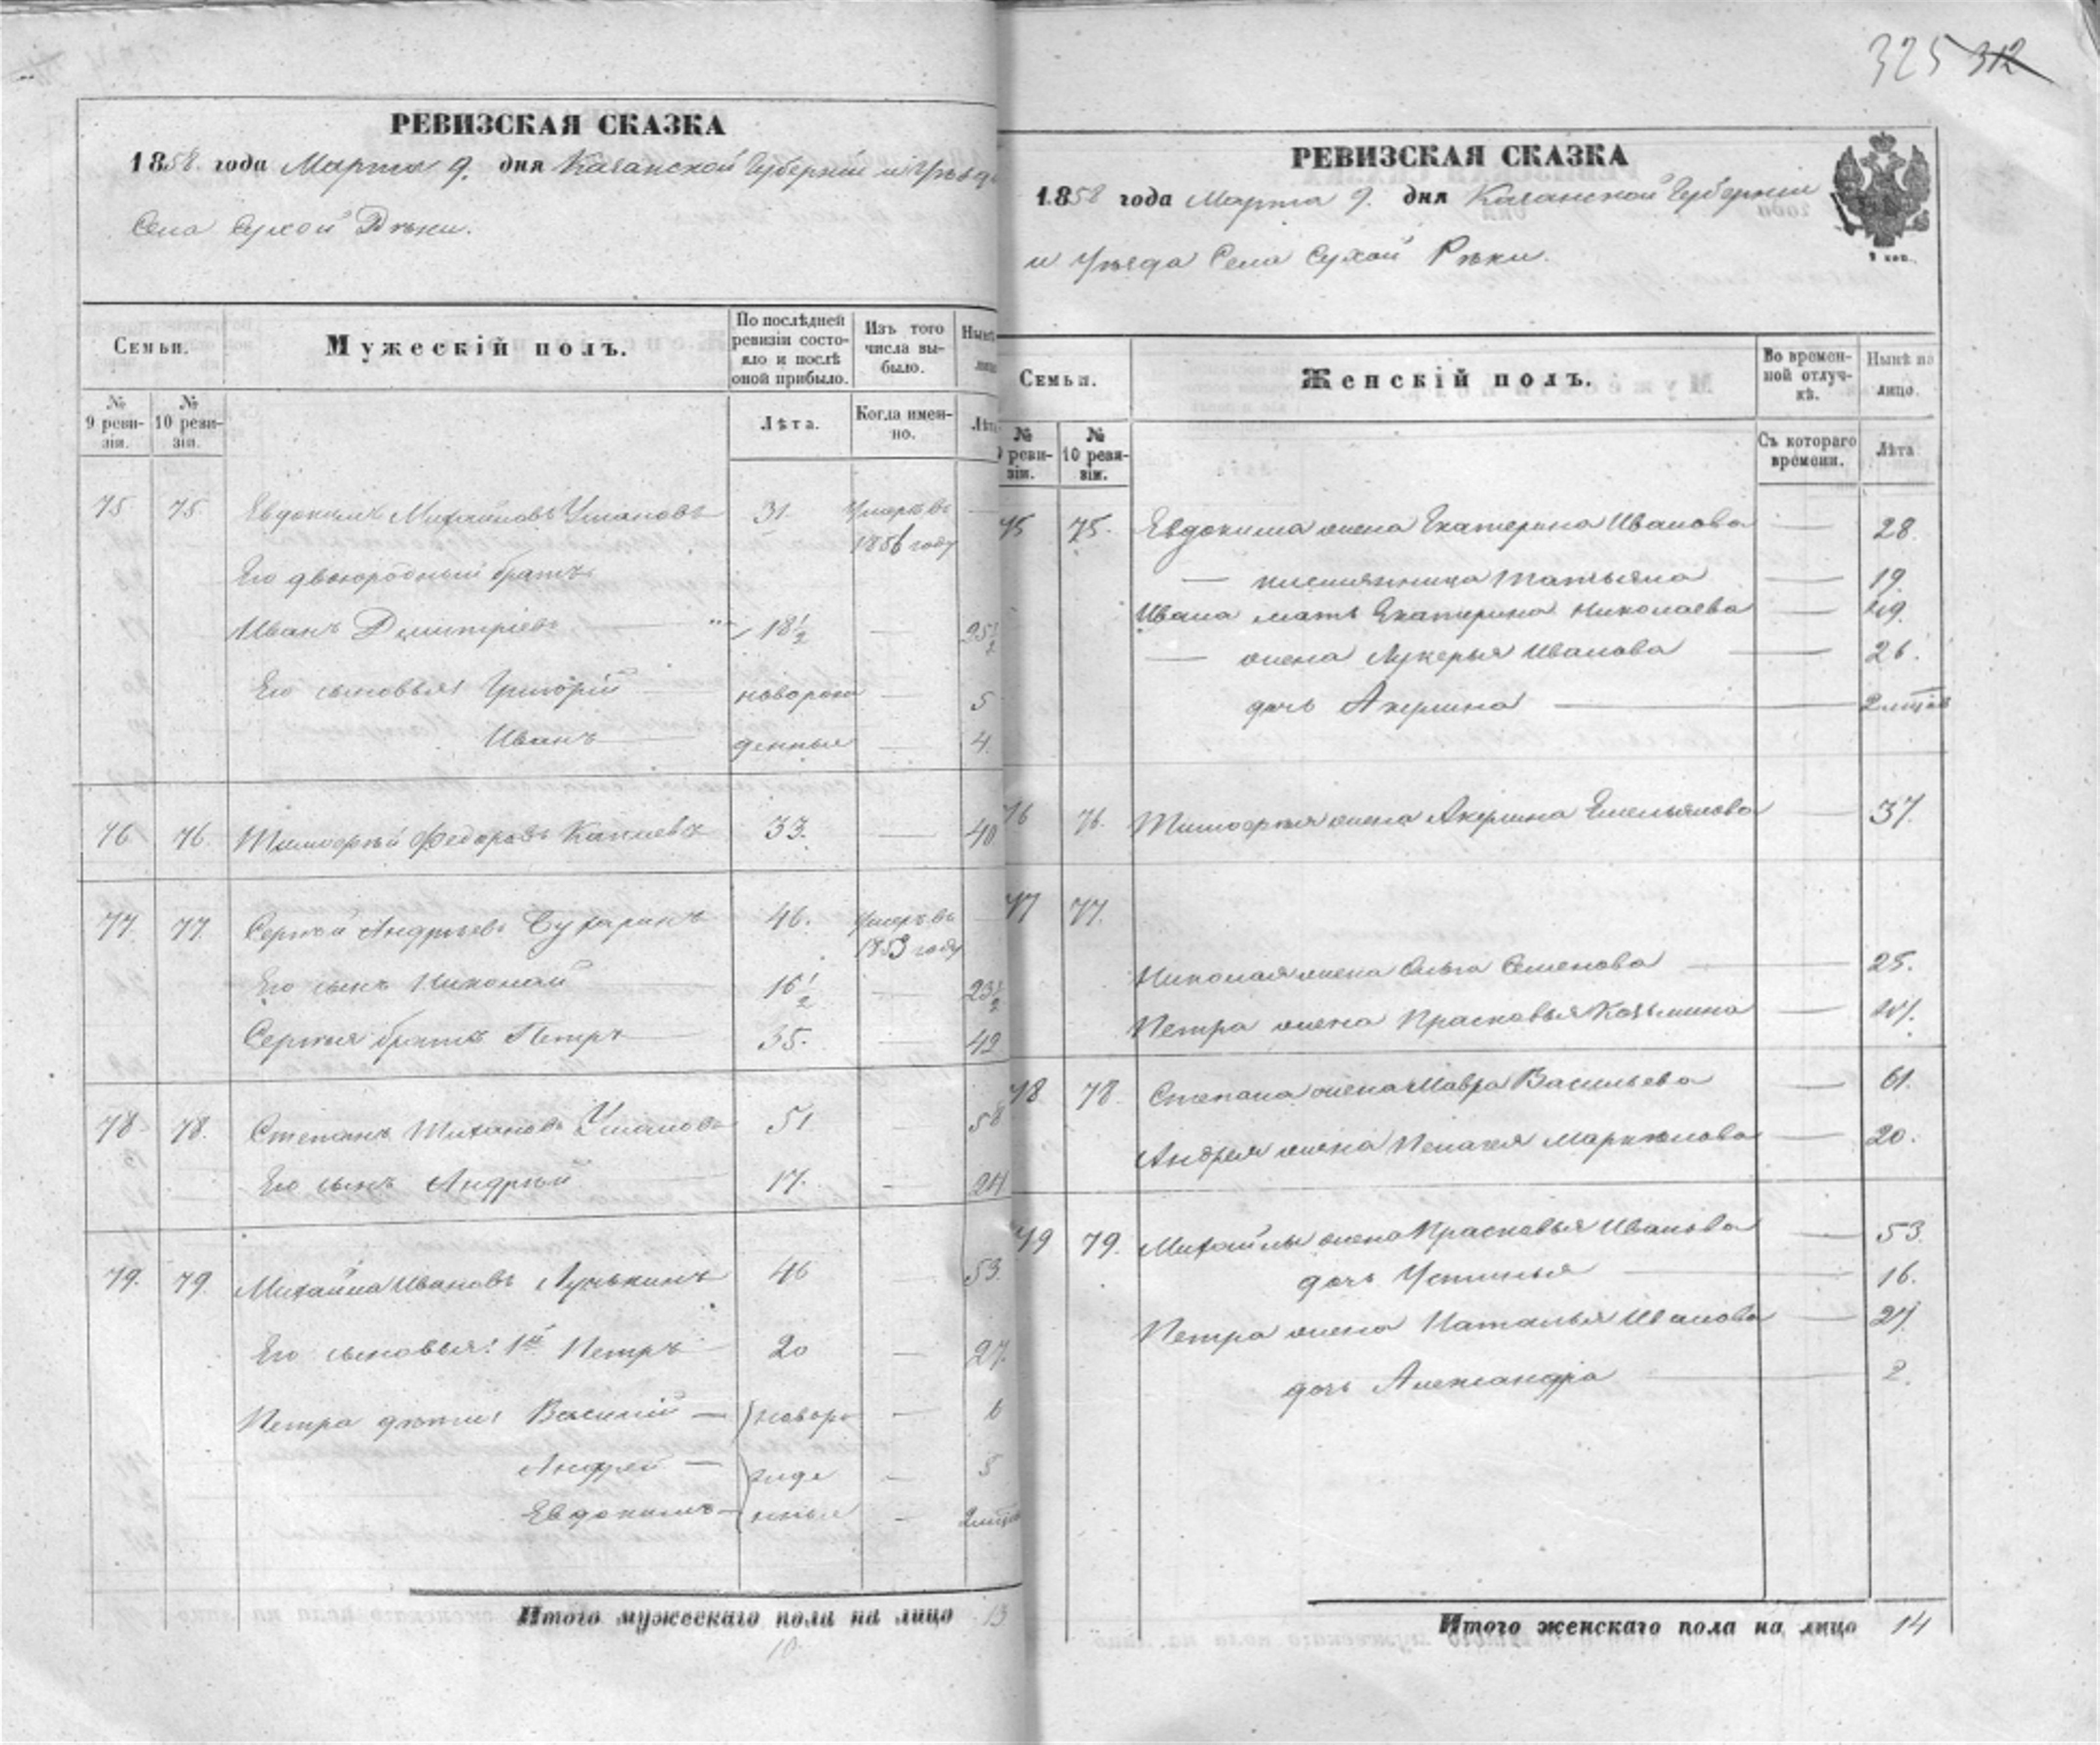 325 312
РЕВИЗСКАЯ СКАЗКА
1858 года Марта 9. дня Казанской Губерніи и Уѣзда
Села Сухой Рѣки.
Семьи.
Мужескій полъ.
По послѣдней ревизіи состояло и послѣ оной прибыло.
Изъ того числа выбыло.
Нынѣ
№ 9 ревизіи.
№ 10 ревизіи.
Лѣта.
Когда именно.
Лѣта
75 75 Евдокимъ Михайловъ 31 Умеръ въ —
1856 году
Его двоюродный братъ
Иванъ Дмитріевъ — 18 1/2 — 25 1/2
Его сыновья: Григорій новорож — 5
Иванъ денные — 4.
76 76. Тимофѣй Федоровъ 33. — 40
77. 77. Сергѣй Андрѣевъ Бухаринъ 46. Умеръ въ —
1853 году
Его сынъ Николай 16 1/2 — 23 1/2
Сергѣя братъ Петръ 35. — 42
78. 78. Степанъ 51 58
Его сынъ Андрѣй 17. — 24
79. 79. Михайла Ивановъ 46 53.
Его сыновья: 1й Петръ 20 — 27.
Петра дѣти: Василій — новоро — 6
Андрей — жде — 3
Евдокимъ — нные —
Итого мужескаго пола на лицо 13
РЕВИЗСКАЯ СКАЗКА
1858 года Марта 9. дня Казанской Губерніи
и Уѣзда Села Сухой Рѣки.
Семьи.
Женскій полъ.
Во временной отлучкѣ.
Нынѣ на лицо.
№ 9 ревизіи.
№ 10 ревизіи.
Съ котораго времени.
Лѣта
75 75. Евдокима жена Екатерина Иванова — 28.
— племянница Татьяна — 19.
Ивана мать Екатерина Николаева — 49.
— жена Лукерья Иванова — 26.
дочь Акулина —
76 76. Тимофѣя жена Акулина Емельянова — 37.
77 77.
Николая жена Ольга Семенова — 25.
Петра жена Прасковья Козьмина —
78 78. Степана жена Мавра Васильева — 61.
Андрея жена Пелагея — 20.
79 79. Михайлы жена Прасковья Иванова — 53.
дочь Устинья — 16.
Петра жена Наталья Иванова —
дочь Александра — 2.
Итого женскаго пола на лицо 14